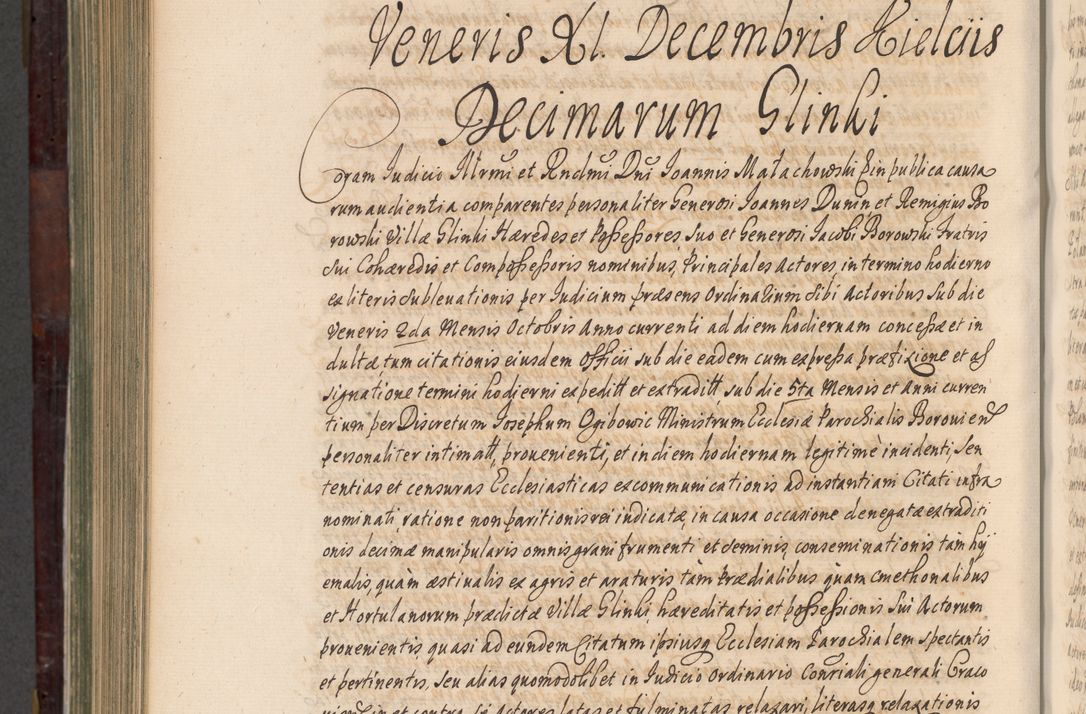 Veneris XI. Decembris Kielciis
Decimarum Glinki
Coram Judicio Illrmi et Rndmi Dni Joannis Małachowski Ep in publica causa
rum audientia comparentes personaliter Generosi Joannes Dunin et Remigius Bo
rowski Villæ Glinki Hæredes et Possessores suo et Generosi Jacobi Borowski Fratris
sui Cohæredis et Compossessoris nominibus, Principales Actores, in termino hodierno
ex literis subleuationis per Judicium præsens Ordinarium sibi Actoribus sub die
Veneris 2da Mensis Octobris Anno currenti ad diem hodiernam concessæ et in
dultæ tum citationis eiusdem Officii sub die eadem cum expressa præfixione et as
signatione termini hodierni expeditt et extraditt, sub die 5ta Mensis et Anni curren
tium per Discretum Josephum Ogibowic Ministrum Ecclesiæ Parochialis Borouien
personaliter intimatt, prouenienti, et in diem hodiernam legitimè incidenti, Sen
tentias et censuras Ecclesiasticas excommunicationis ad instantiam Citati infra
nominati, ratione non paritionis rei iudicatæ, in causa occasione denegatæ extraditi
onis decimæ manipularis omnis grani frumenti et seminis, conseminationis tàm hy
emalis, quàm æstiualis ex agris et araturis tàm Prædialibus quam cmethonalibus
et Hortulanorum prædictæ Villæ Glinki, hæreditatis et possessionis sui Actorum
prouenientis quasi ad eundem Citatum ipsiusq Ecclesiam Parochialem spectantis
et pertinentis, seu alias quomodolibet in Judicio Ordinario Consriali generali Craco
in et contra se Actores latas et fulminatas relaxari, literasq relaxationis